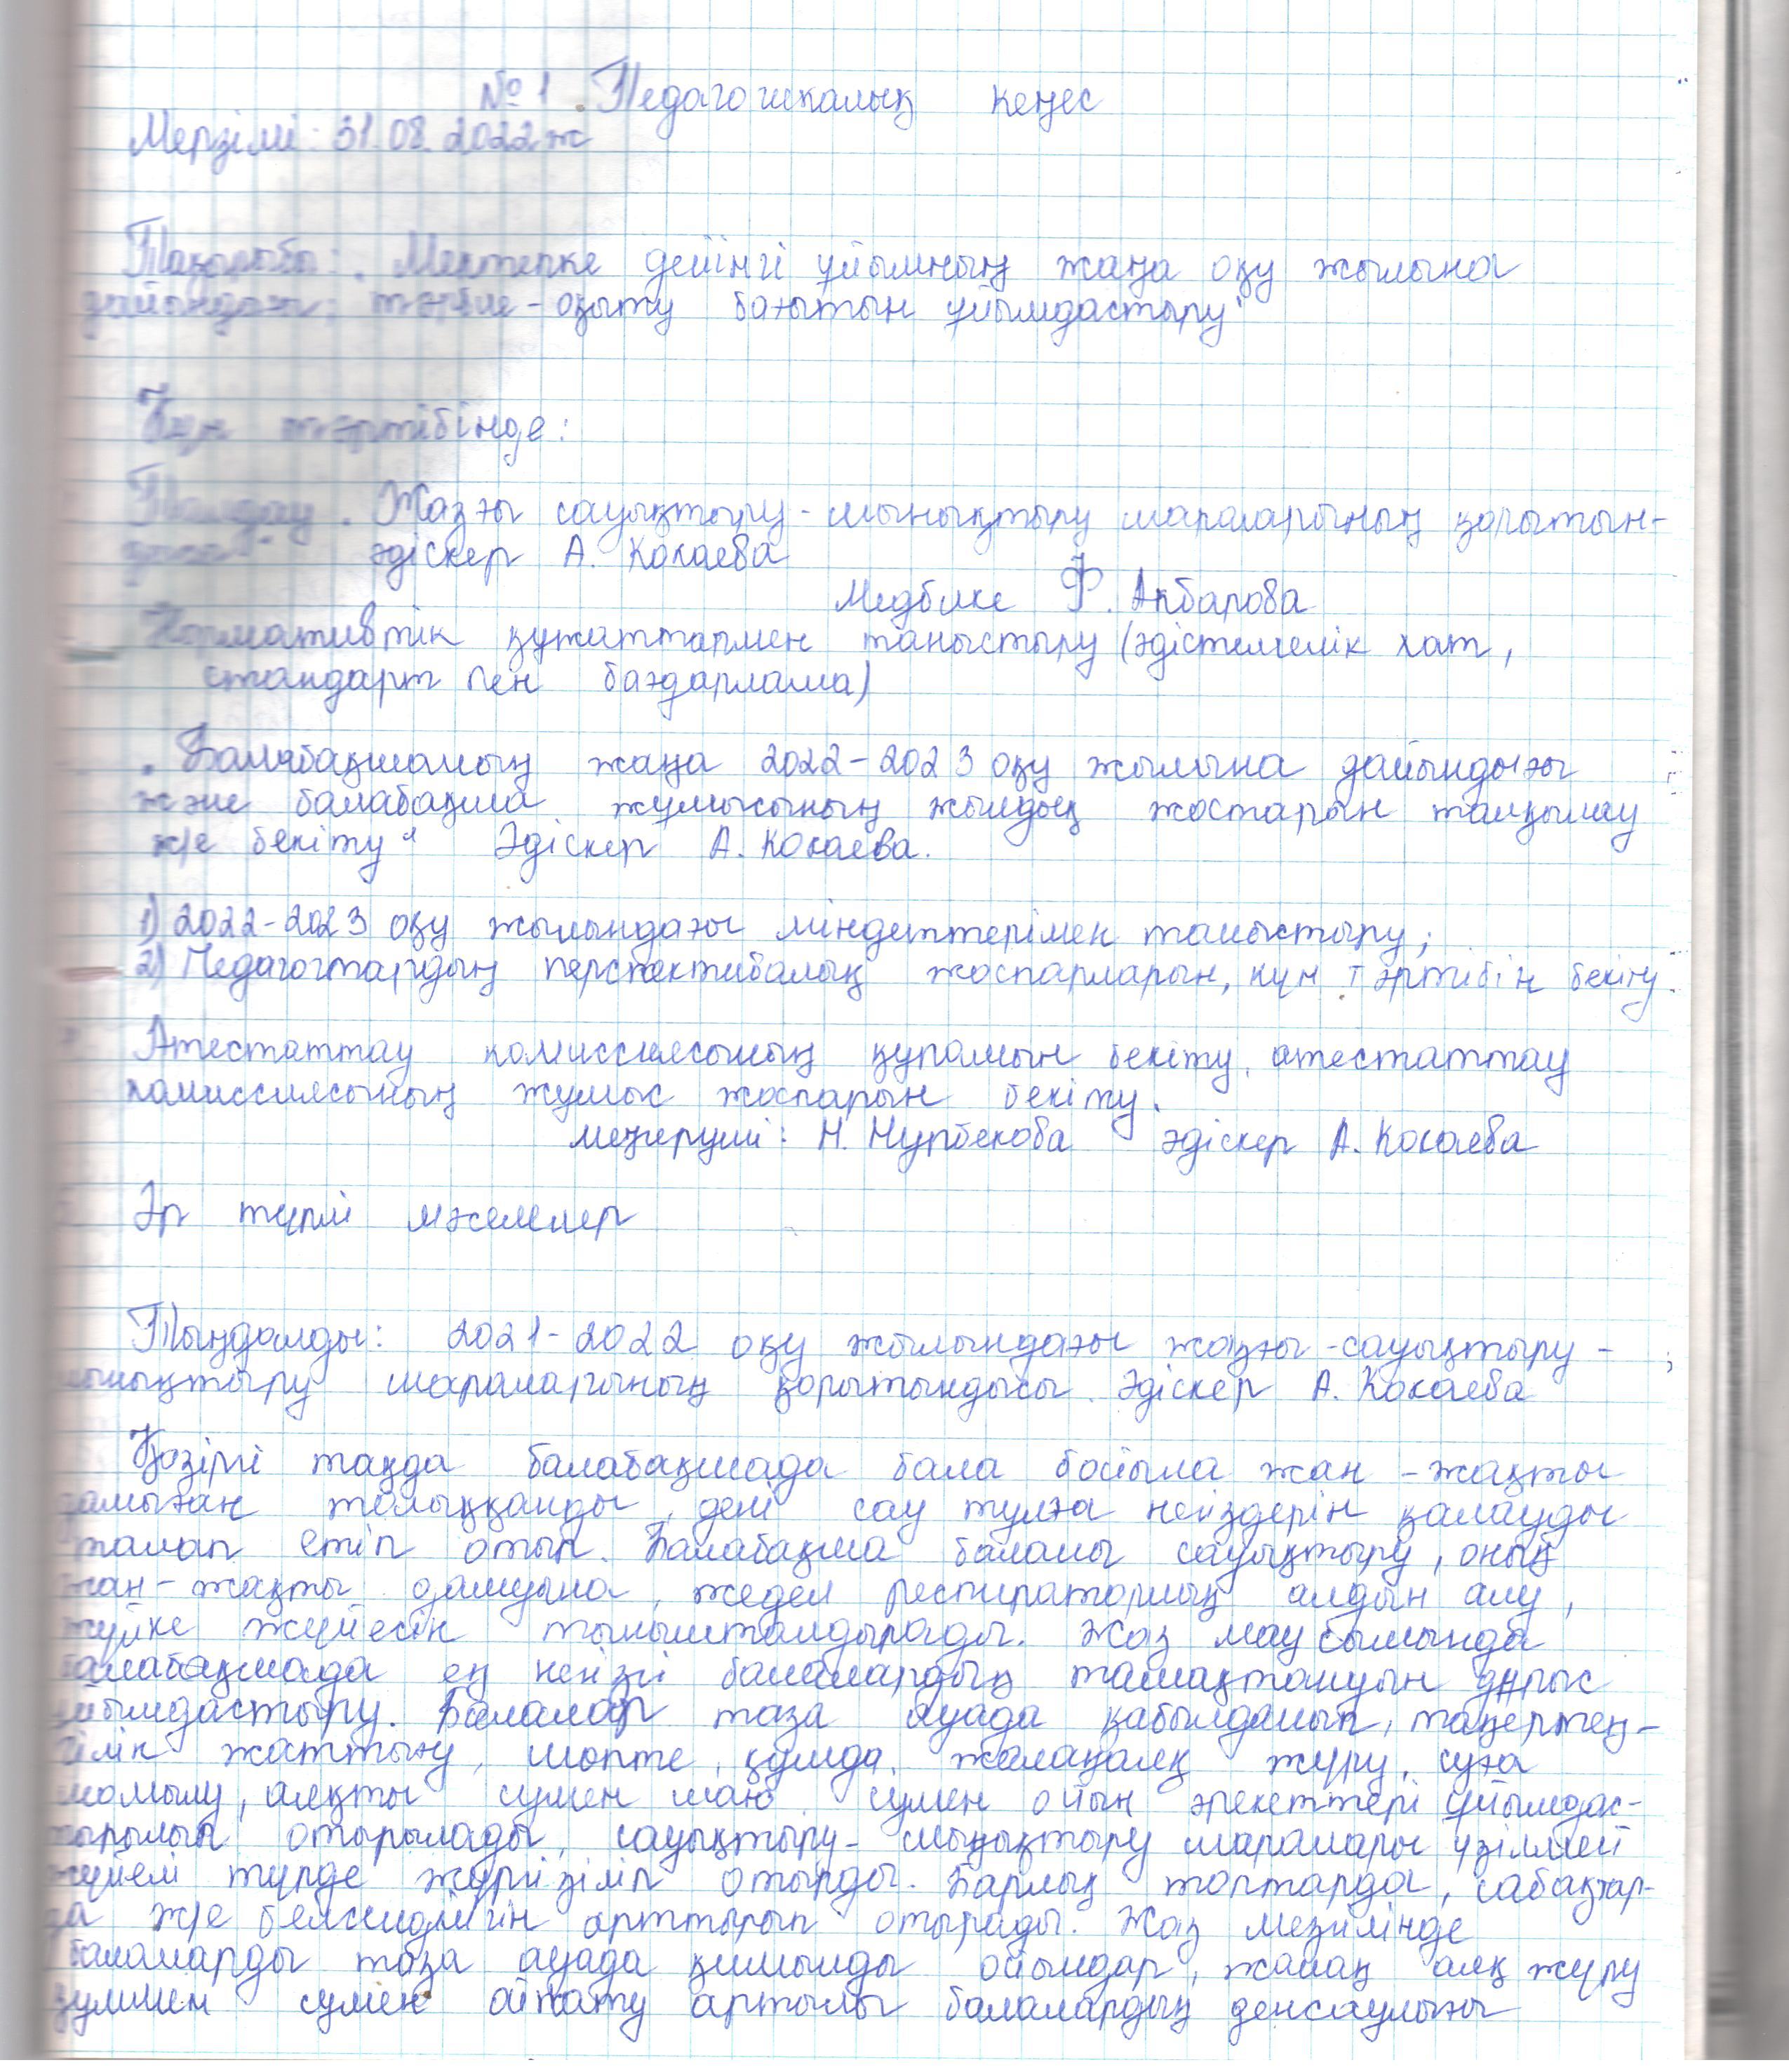 № 1 Педагогикалық кеңес
Мерзімі: 31.08.2022 ж
Тақырыбы: Мектепке дейінгі ұйымның жаңа оқу жылына
дайындығы; тәрбие-оқыту бағытын ұйымдастыру"
Күн тәртібінде:
Талдау. Жазғы сауықтыру-шынықтыру шараларының қорытын-
дысы" әдіскер А. Кокаева
Медбике Ф. Акбарова
Нормативтік құжаттармен таныстыру (әдістемелік хат,
стандарт пен бағдарлама)
„Балабақшаның жаңа 2022-2023 оқу жылына дайындығы
және балабақша жұмысының жылдық жоспарын талқылау
ж/е бекіту" Әдіскер А. Кокаева.
1) 2022-2023 оқу жылындағы міндеттерімен таныстыру;
2) Педагогтардың перспективалық жоспарларын, күн тәртібін бекіту.
Атестаттау комиссиясының құрамын бекіту, атестаттау
комиссиясының жұмыс жоспарын бекіту.
меңгеруші: Н. Нурбекова әдіскер А. Кокаева
Әр түрлі мәселелер
Тыңдалды: 2021-2022 оқу жылындағы жазғы-сауықтыру-
шынықтыру шараларының қорытындысы. Әдіскер А. Кокаева
Қазіргі таңда балабақшада бала бойына жан-жақты
дамыған толыққанды, дені сау тұлға негіздерін қалауды
талап етіп отыр. Балабақша баланы сауықтыру, оның
жан-жақты дамуына, жедел респираторлық алдын алу,
жүйке жүйесін тынышталдырады. Жаз маусымында
балабақшада ең негізгі балалардың тамақтануын дұрыс
ұйымдастыру. Балалар таза ауада қабылданып, таңертең-
гілік жаттығу, шөпте, құмда, жалаңаяқ жүру, суға
шомылу, аяқты сумен шаю, сумен ойын әрекеттері ұйымдас-
тырылып отырылады, сауықтыру-шынықтыру шаралары үзілмей
жүйелі түрде жүргізіліп отырды. Барлық топтарда, сабақтар-
да ж/е белсенділігін арттырып отырады. Жаз мезгілінде
балаларды таза ауада қимылды ойындар, жалаң аяқ жүру
құммен сумен ойнату артылы балалардың денсаулығы